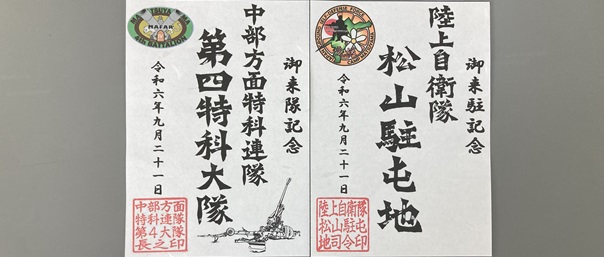 御来駐記念
陸上自衛隊
松山駐屯地
令和六年九月二十一日
陸上自衛隊
松山駐屯
地司令印
御来隊記念
中部方面特科連隊
第四特科大隊
令和六年九月二十一日
MAFAR
4th BATTALION
中部方面
特科連隊
第4大隊
長之印